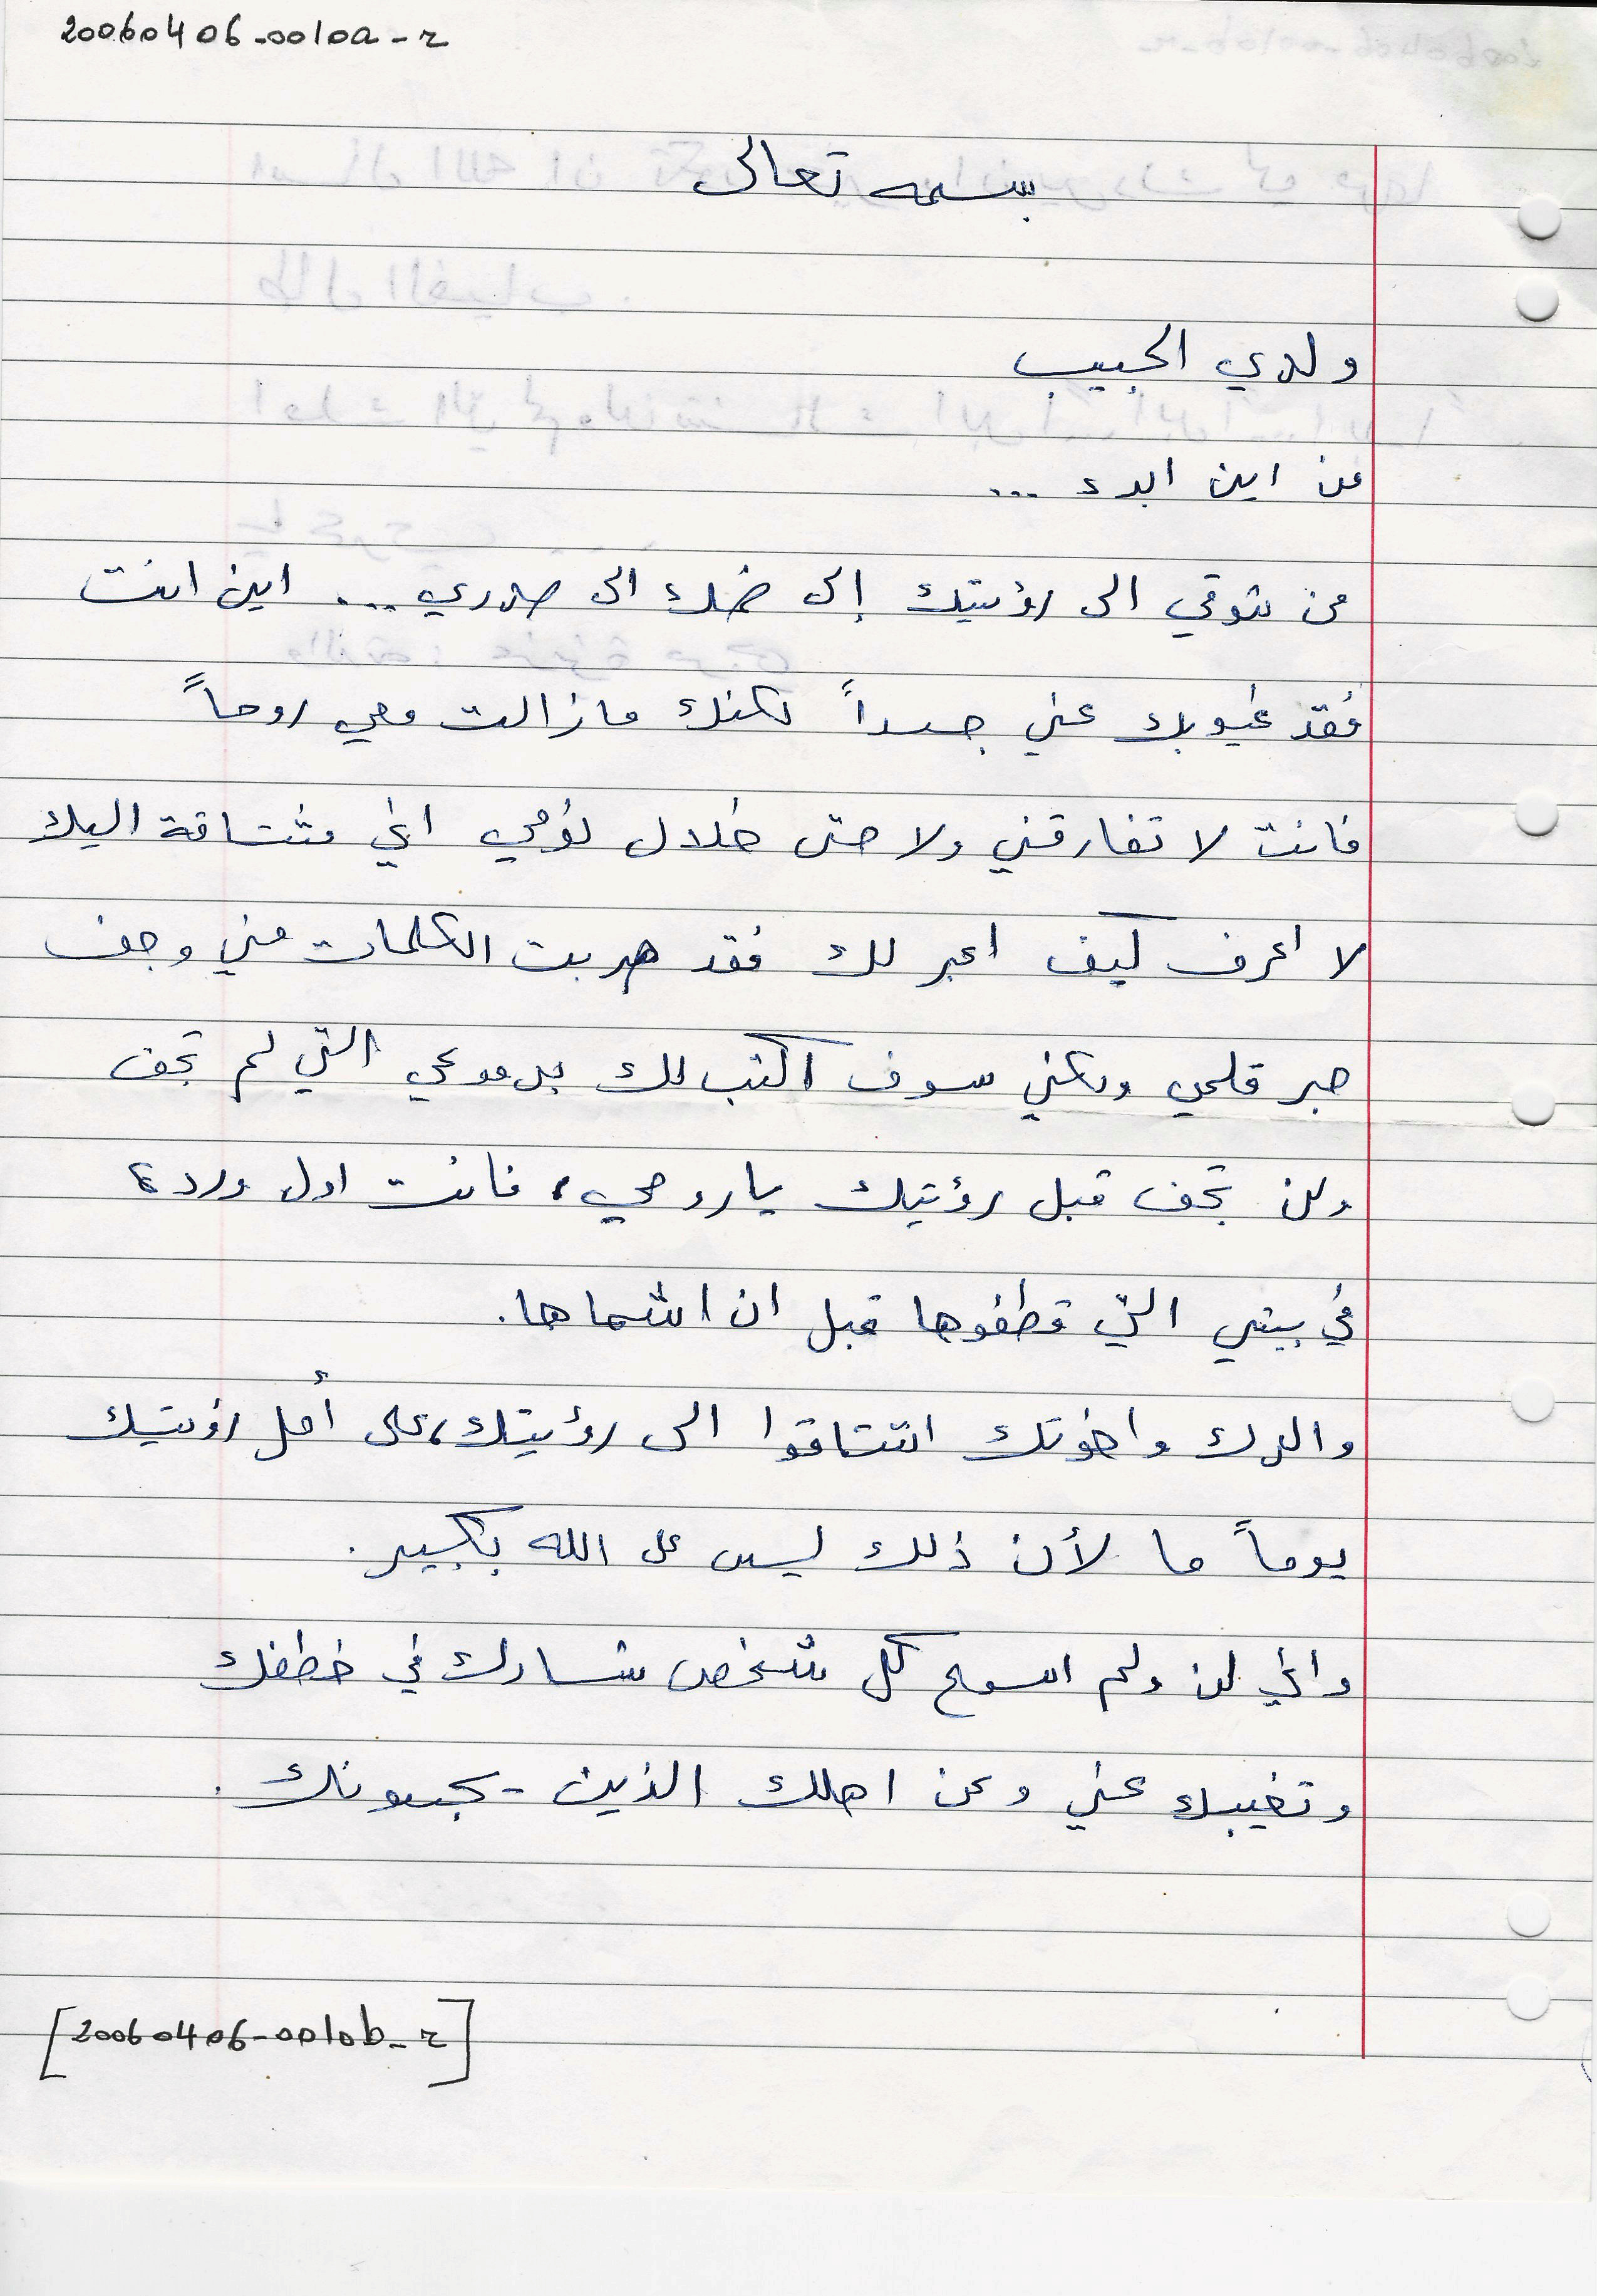 20060406-0010a-r
بسمه تعالى
ولدي الحبيب
من اين ابدء ...
من شوقي الى رؤيتك إلى ضمك الى صدري ... اين انت
فقد غيوبك عني جسداً لكنك مازالت معي روحاً
فانت لا تفارقني ولا حتى خلال نومي اني مشتاقة اليك
لا اعرف كيف اعبر لك فقد هربت الكلمات مني وجف
حبر قلمي ولكني سوف اكتب لك بدموعي التي لم تجف
ولن تجف قبل رؤيتك ياروحي، فانت اول وردة
في بيتي التي قطفوها قبل ان اشماها.
والدك واخوتك اشتاقوا الى رؤيتك، على أمل رؤيتك
يوماً ما لأن ذلك ليس على الله بكبير.
واني لن ولم اسمح كل شخص شارك في خطفك
وتغيبك عني وعن اهلك الذين يحبونك.
[20060406-0010b-r]